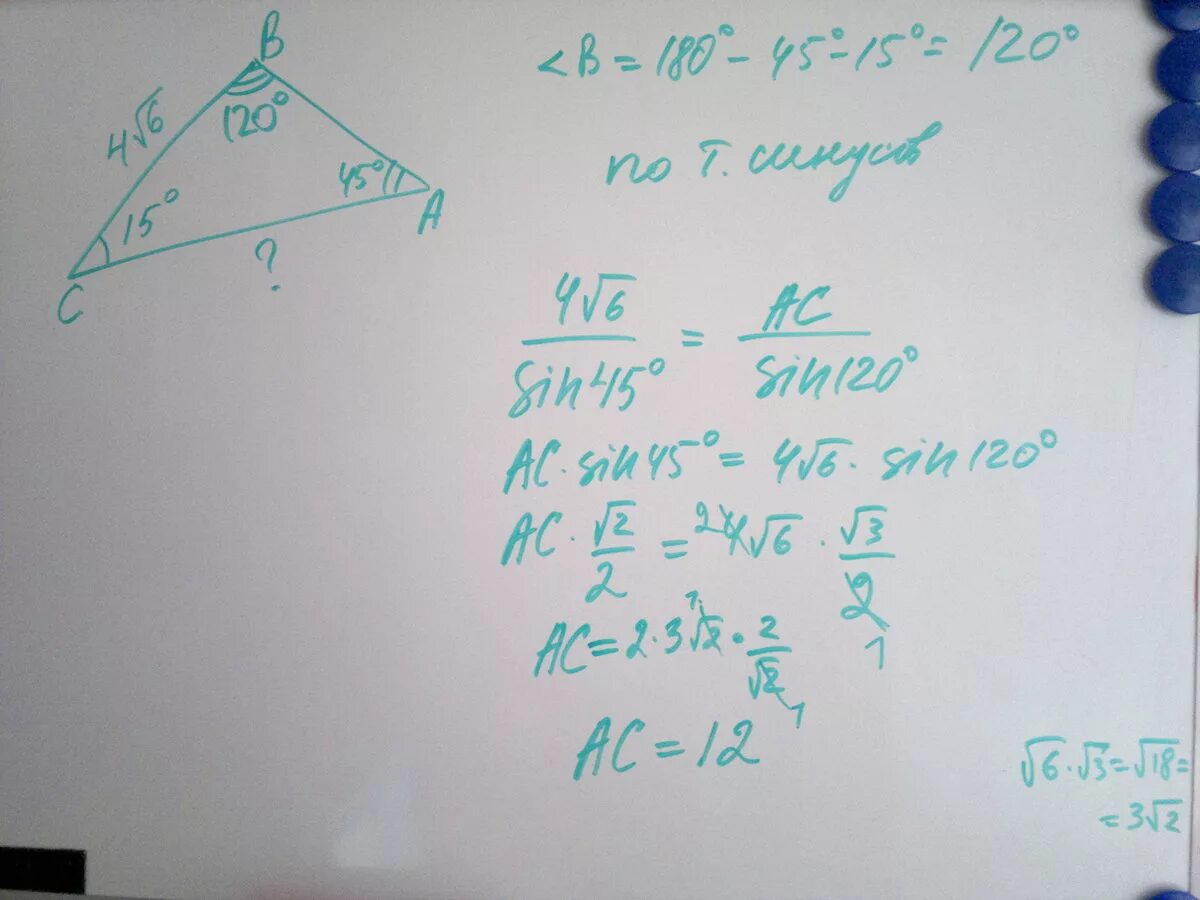 B
4√6
120°
15°
45°
A
?
C
<B = 180° - 45° - 15° = 120°
по т. синусов
4√6 / sin45° = AC / sin120°
AC · sin45° = 4√6 · sin120°
AC · √2/2 = 2 4√6 · √3/2 1
AC = 2·3√2 1 · 2/√2 1
AC = 12
√6 · √3 = √18 =
= 3√2